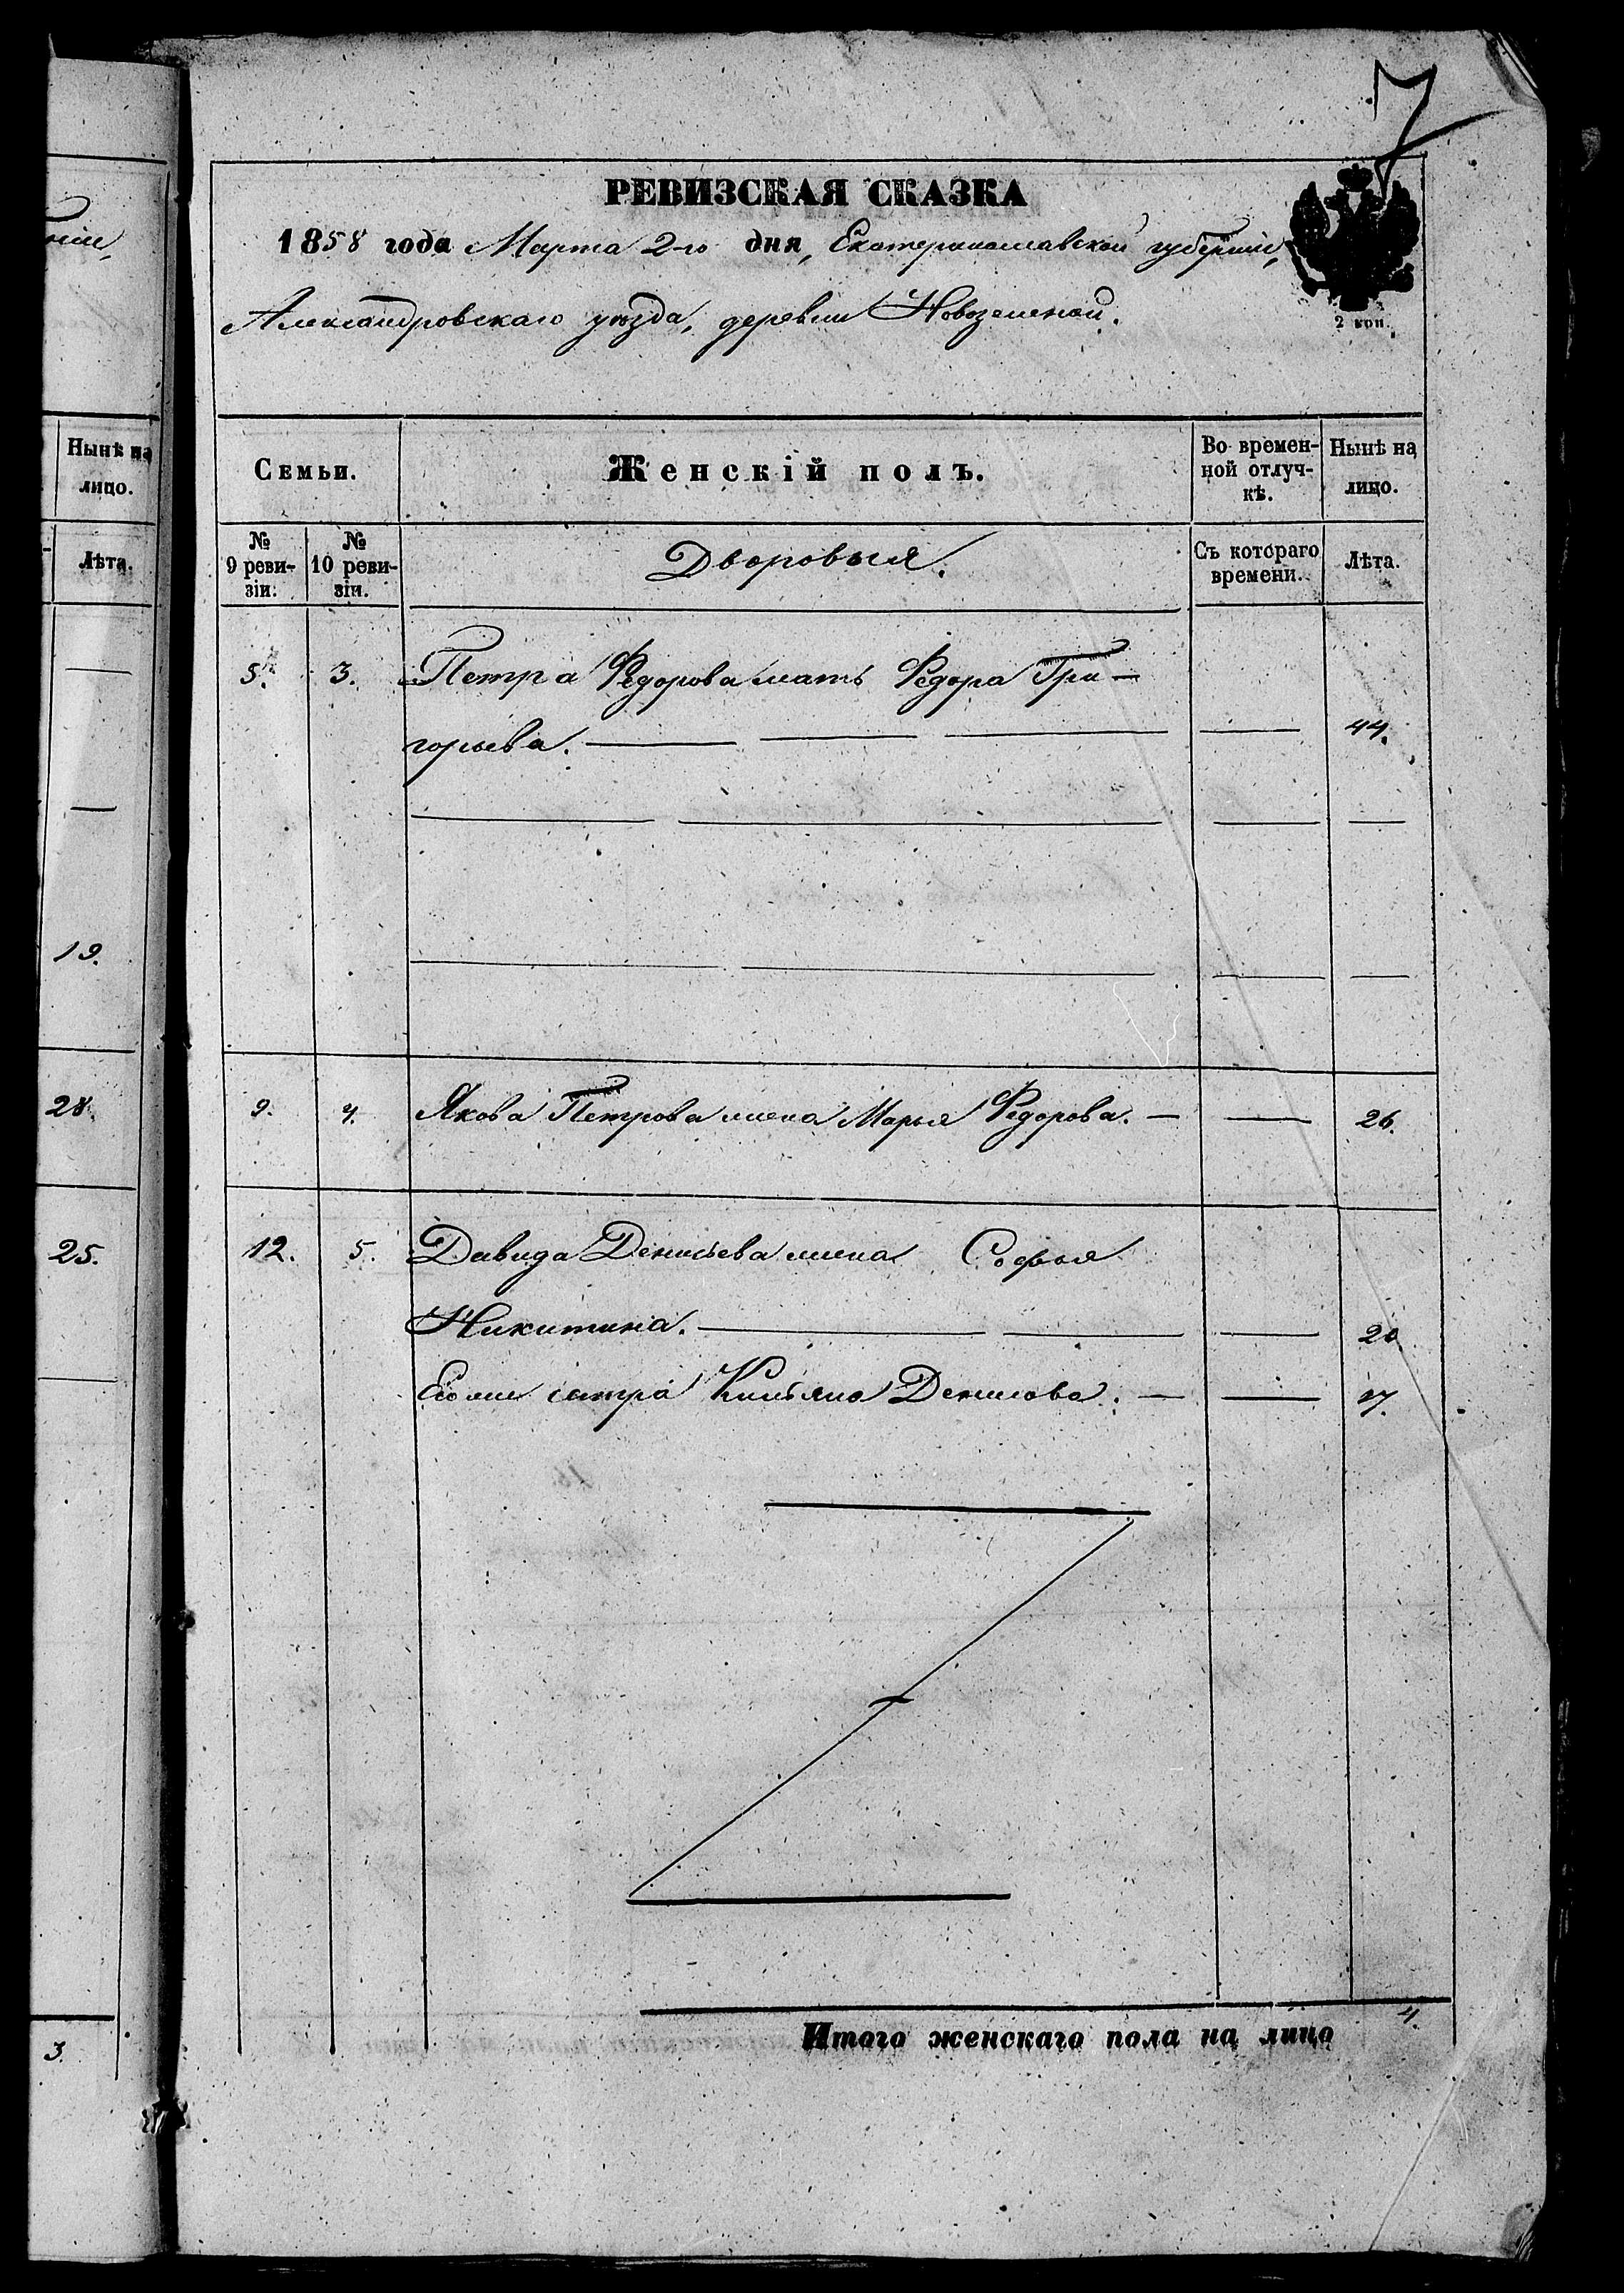 7
РЕВИЗСКАЯ СКАЗКА
1858 года Марта 2-го дня, Екатеринославской губерніи,
Александровскаго уѣзда, деревни Новозеленой.
2 коп.
Нынѣ на лицо.
Лѣта.
19.
28.
25.
3.
Семьи.
Женскій полъ.
Во времен-
ной отлуч-
кѣ.
Нынѣ на
лицо.
№
9 реви-
зіи.
№
10 реви-
зіи.
Дворовыя.
Съ котораго
времени.
Лѣта.
5. 3. Петра Федорова мать Федора Гри-
горьева. 44.
9. 4. Якова Петрова жена Марья Федорова. 26.
12. 5. Давида Денисьева жена Софья
Никитина. 20
Его же сестра Денисова. 17.
Итого женскаго пола на лицо 4.